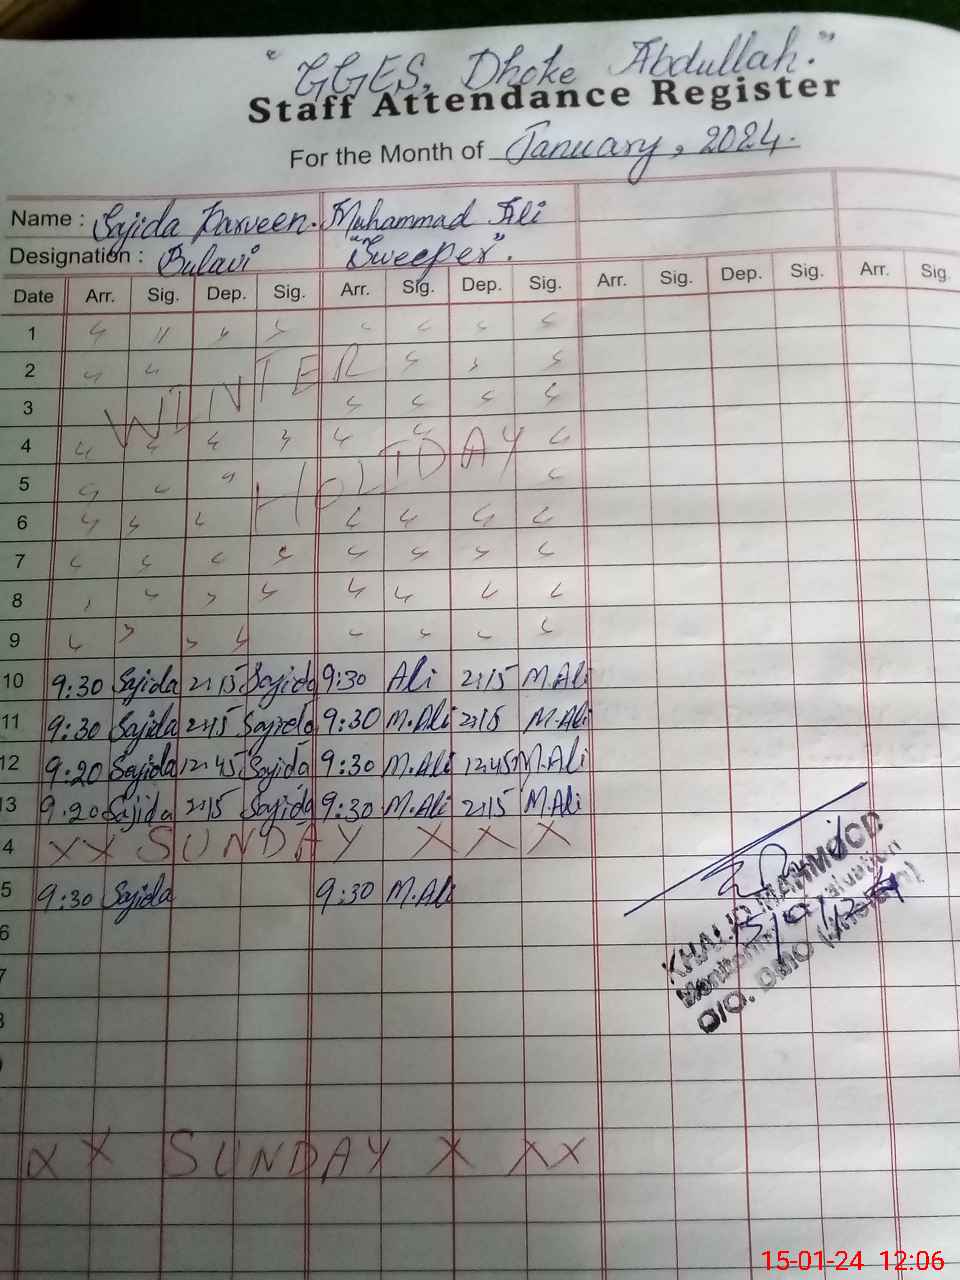 "GGES, Dhoke Abdullah."
Staff Attendance Register
For the Month of January, 2024.
Name : Sajida Parveen. Muhammad Ali
Designation : Bulavi "Sweeper".
Date Arr. Sig. Dep. Sig. Arr. Sig. Dep. Sig. Arr. Sig. Dep. Sig. Arr. Sig.
1
2
3
4
5
6
7
8
9
WINTER
HOLIDAY
10 9:30 Sajida 2:15 Sajida 9:30 Ali 2:15 M.Ali
11 9:30 Sajida 2:15 Sajida 9:30 M.Ali 2:15 M.Ali
12 9:20 Sajida 12:45 Sajida 9:30 M.Ali 12:45 M.Ali
13 9:20 Sajida 2:15 Sajida 9:30 M.Ali 2:15 M.Ali
4 X X SUNDAY X X X
5 9:30 Sajida 9:30 M.Ali
6
7
KHALID MAHMOOD
Monitoring & Evaluation
O/O. DMO (Jhelum)
X X SUNDAY X X X
15-01-24 12:06